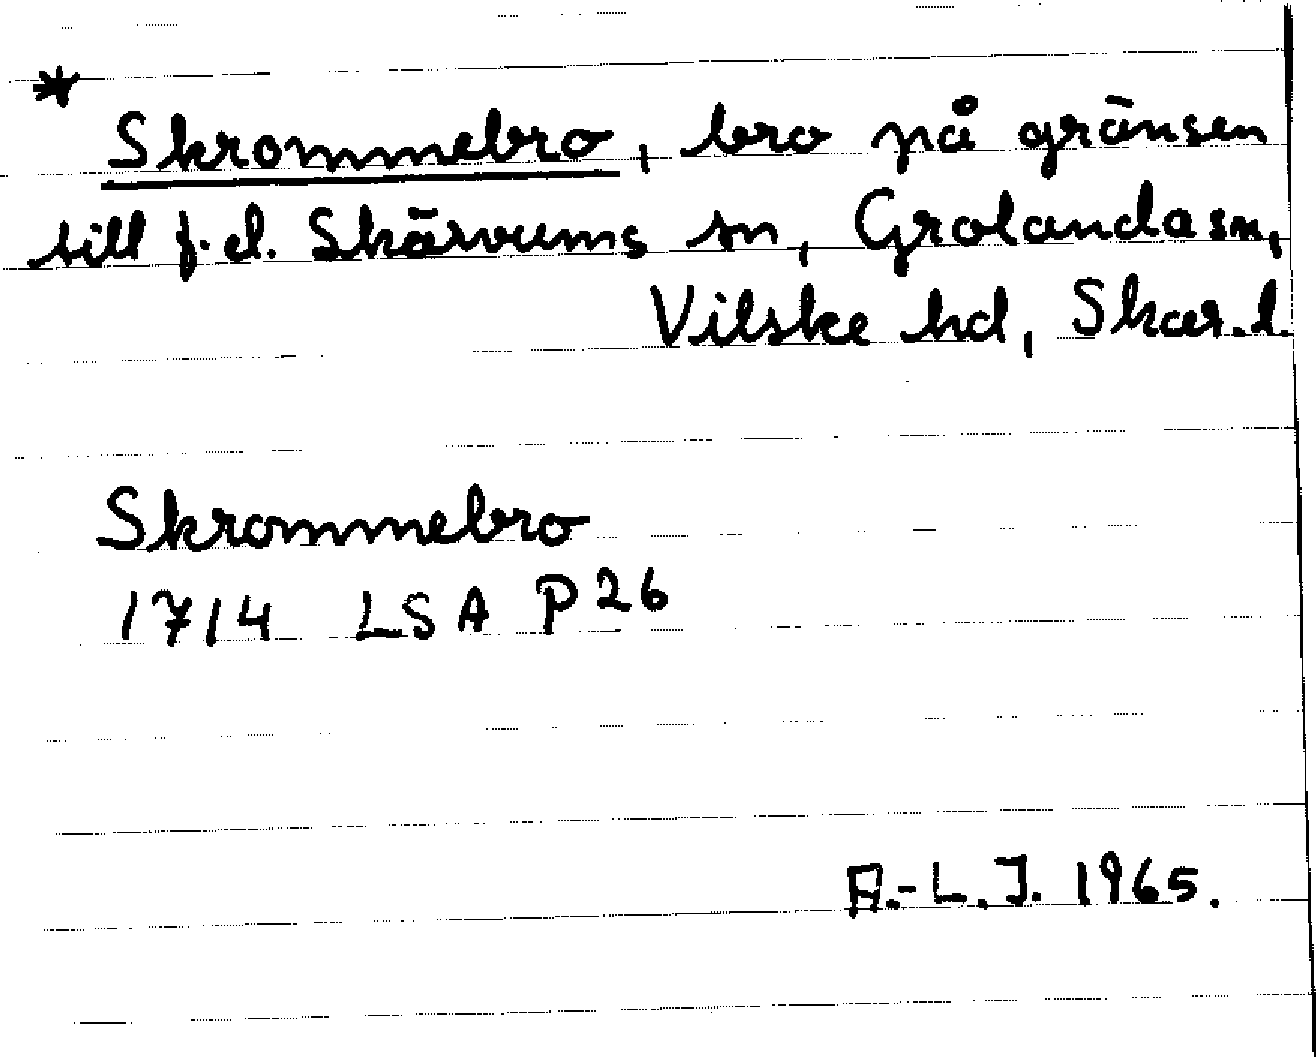 * Skrommebro, bro på gränsen
till f.d. Skärvums sn, Grolanda sn,
Vilske hd, Skar.l.
Skrommebro
1714 LSA P26
A.-L.J. 1965.